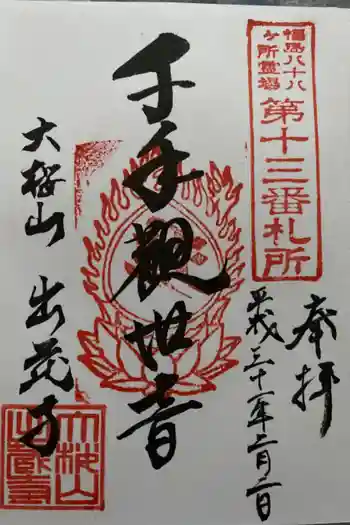 福島八十八
ヶ所霊場
第十三番札所
奉拝
平成三十年二月二日
千手観世音
大桜山 出蔵寺
大桜山
出蔵寺